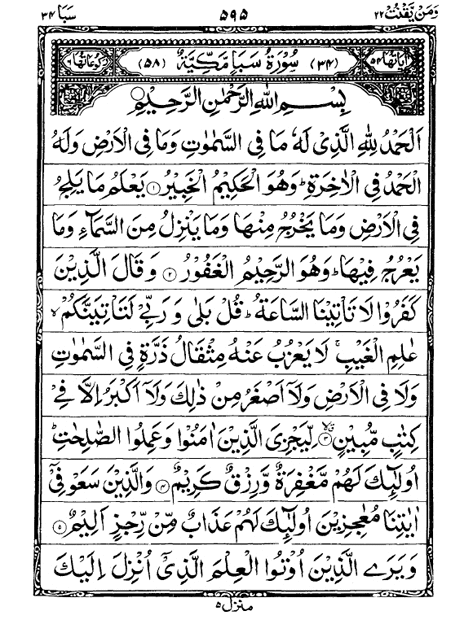 وَمَنۡ يَّقۡنُتۡ ٢٢ ۵٩۵ سَبَا ٣٤
اٰيَاتُهَا ۵٤ (٣٤) سُوۡرَةُ سَبَاٍ مَكِّيَّةٌ (۵٨) رُكُوۡعَاتُهَا ٦
بِسۡمِ اللّٰهِ الرَّحۡمٰنِ الرَّحِيۡمِ
اَلۡحَمۡدُ لِلّٰهِ الَّذِىۡ لَهٗ مَا فِى السَّمٰوٰتِ وَمَا فِى الۡاَرۡضِ وَلَهُ
الۡحَمۡدُ فِى الۡاٰخِرَةِ ؕ وَهُوَ الۡحَكِيۡمُ الۡخَبِيۡرُ ١ يَعۡلَمُ مَا يَلِجُ
فِى الۡاَرۡضِ وَمَا يَخۡرُجُ مِنۡهَا وَمَا يَنۡزِلُ مِنَ السَّمَآءِ وَمَا
يَعۡرُجُ فِيۡهَا ؕ وَهُوَ الرَّحِيۡمُ الۡغَفُوۡرُ ٢ وَقَالَ الَّذِيۡنَ
كَفَرُوۡا لَا تَاۡتِيۡنَا السَّاعَةُ ؕ قُلۡ بَلٰى وَرَبِّىۡ لَتَاۡتِيَنَّكُمۡ ۙ
عٰلِمِ الۡغَيۡبِ ۚ لَا يَعۡزُبُ عَنۡهُ مِثۡقَالُ ذَرَّةٍ فِى السَّمٰوٰتِ
وَلَا فِى الۡاَرۡضِ وَلَاۤ اَصۡغَرُ مِنۡ ذٰلِكَ وَلَاۤ اَكۡبَرُ اِلَّا فِىۡ
كِتٰبٍ مُّبِيۡنٍ ۙ ٣ لِّيَجۡزِىَ الَّذِيۡنَ اٰمَنُوۡا وَعَمِلُوا الصّٰلِحٰتِ ؕ
اُولٰٓٮِٕكَ لَهُمۡ مَّغۡفِرَةٌ وَّرِزۡقٌ كَرِيۡمٌ ٤ وَالَّذِيۡنَ سَعَوۡ فِىۡۤ
اٰيٰتِنَا مُعٰجِزِيۡنَ اُولٰٓٮِٕكَ لَهُمۡ عَذَابٌ مِّنۡ رِّجۡزٍ اَلِيۡمٌ ۵
وَيَرَى الَّذِيۡنَ اُوۡتُوا الۡعِلۡمَ الَّذِىۡۤ اُنۡزِلَ اِلَيۡكَ
منزل ۵